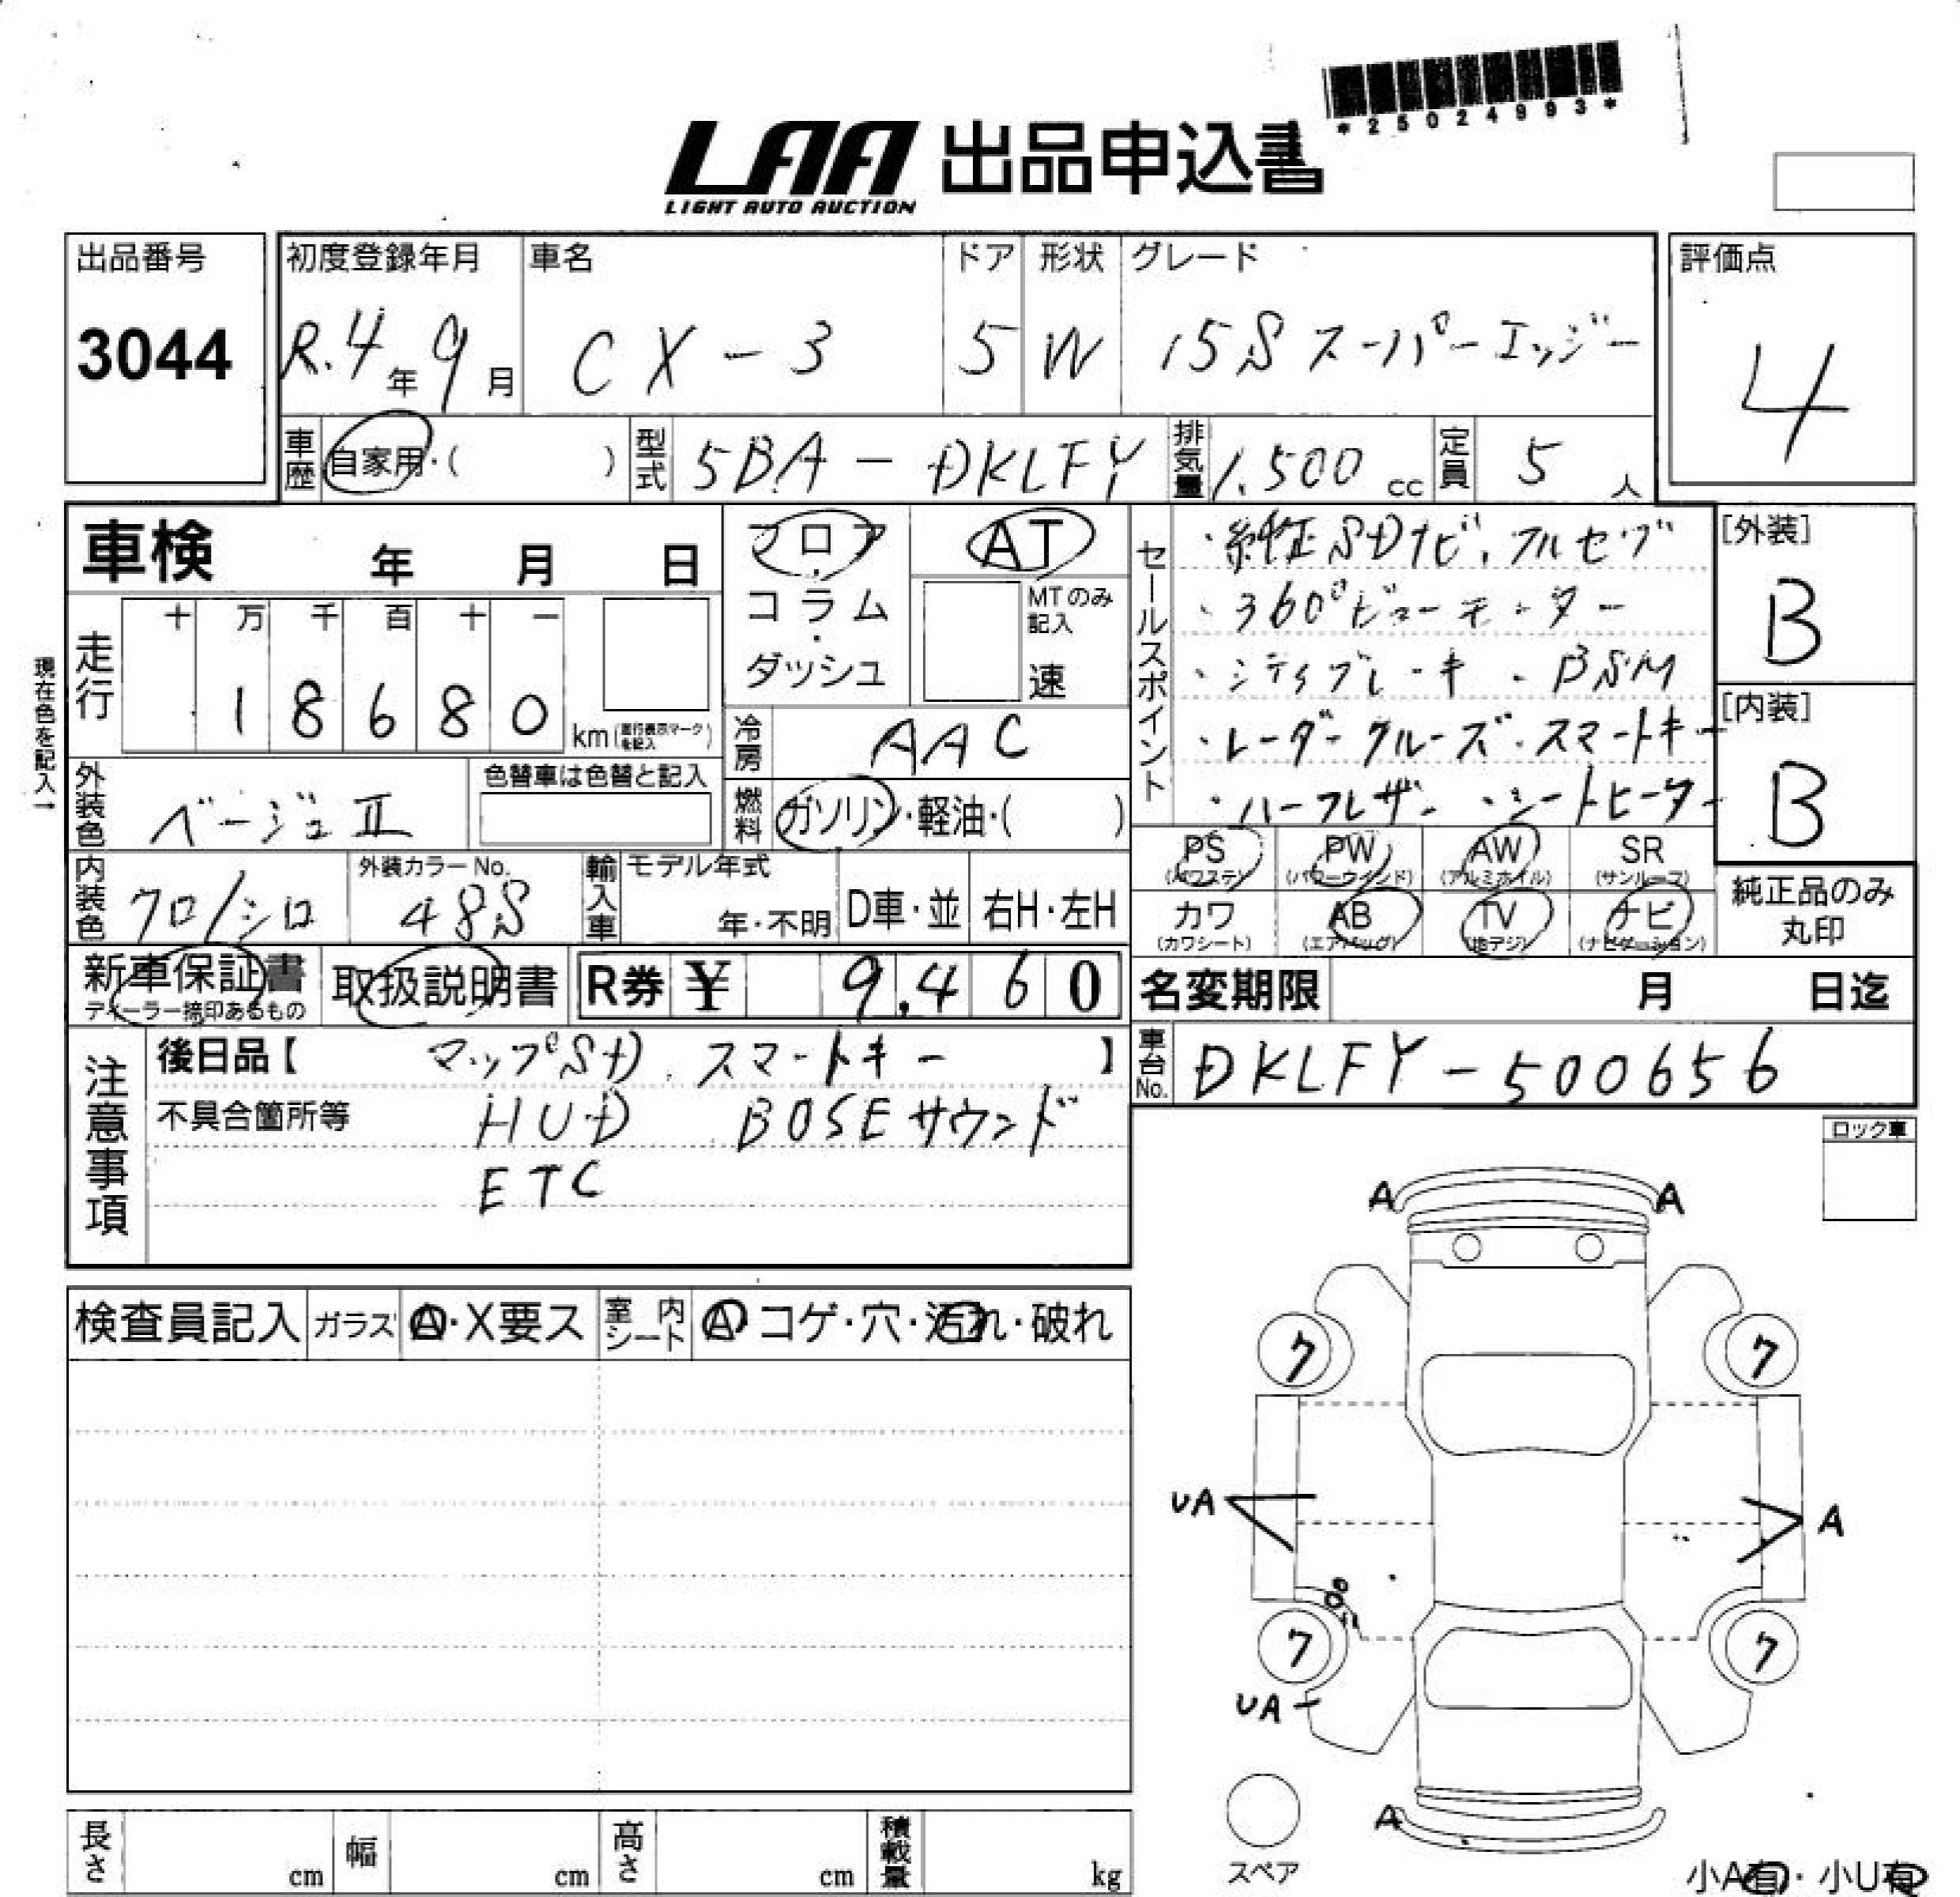 *25024993*
LAA 出品申込書
LIGHT AUTO AUCTION
出品番号 3044
初度登録年月 R.4年9月
車名 CX-3
ドア 5
形状 W
グレード 15S スーパーエッジー
評価点 4
車歴 自家用・( )
型式 5BA-DKLFY
排気量 1,500 cc
定員 5 人
車検 年 月 日
フロア・コラム・ダッシュ
AT
MTのみ記入 速
セールスポイント
・純正SDナビ、フルセグ
・360°ビューモニター
・シティブレーキ ・BSM
・レーダークルーズ・スマートキー
・ハーフレザー ・シートヒーター
[外装] B
[内装] B
現在色を記入→
走行 十 万 千 百 十 一
18680 km(走行表示マークを記入)
冷房 AAC
外装色 ベージュII
色替車は色替と記入
燃料 ガソリン・軽油・( )
内装色 クロ/シロ
外装カラーNo. 48S
輸入車 モデル年式 年・不明 D車・並 右H・左H
PS (パワステ) PW (パワーウインド) AW (アルミホイル) SR (サンルーフ)
カワ (カワシート) AB (エアバッグ) TV (地デジ) ナビ (ナビゲーション)
純正品のみ丸印
新車保証書 ディーラー捺印あるもの
取扱説明書
R券 ¥ 9,460
名変期限 月 日迄
注意事項
後日品【 マップSD、スマートキー 】
不具合箇所等 HUD BOSEサウンド
ETC
車台No. DKLFY-500656
ロック車
検査員記入 ガラス A・X要ス 室内シート A コゲ・穴・汚れ・破れ
A A
7 7
UA A
7 7
UA
A
スペア
小A有・小U有
長さ cm 幅 cm 高さ cm 積載量 kg